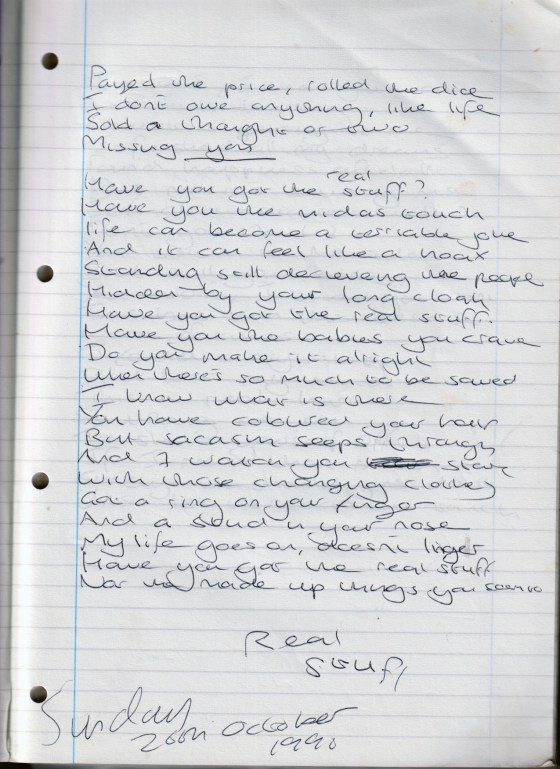 Payed the price, rolled the dice
I dont owe anything, like life
Sold a thought or two
Missing you
Have you got the real stuff?
Have you the midas touch
life can become a terriable joke
And it can feel like a hoax
Standing still decieveing the people
Hidden by your long cloak
Have you got the real stuff.
Have you the babies you crave
Do you make it alright
When there's so much to be saved
I know what is there
You have coloured your hair
But sacasm seeps through
And I watch you
With those changing clothes
Got a ring on your finger
And a stud in your nose
My life goes on, doesnt linger
Have you got the real stuff
Not the made up things you
Real
Stuff
Sunday
20th October
1990